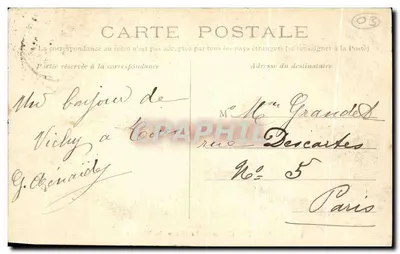 CARTE POSTALE
La correspondance au recto n'est pas acceptée par tous les pays étrangers (se renseigner à la Poste)
Partie réservée à la correspondance
Adresse du destinataire
Un bonjour de
Vichy a
G.
M Mme Grandet
rue Descartes
No 5
Paris
CPAPHIL
03